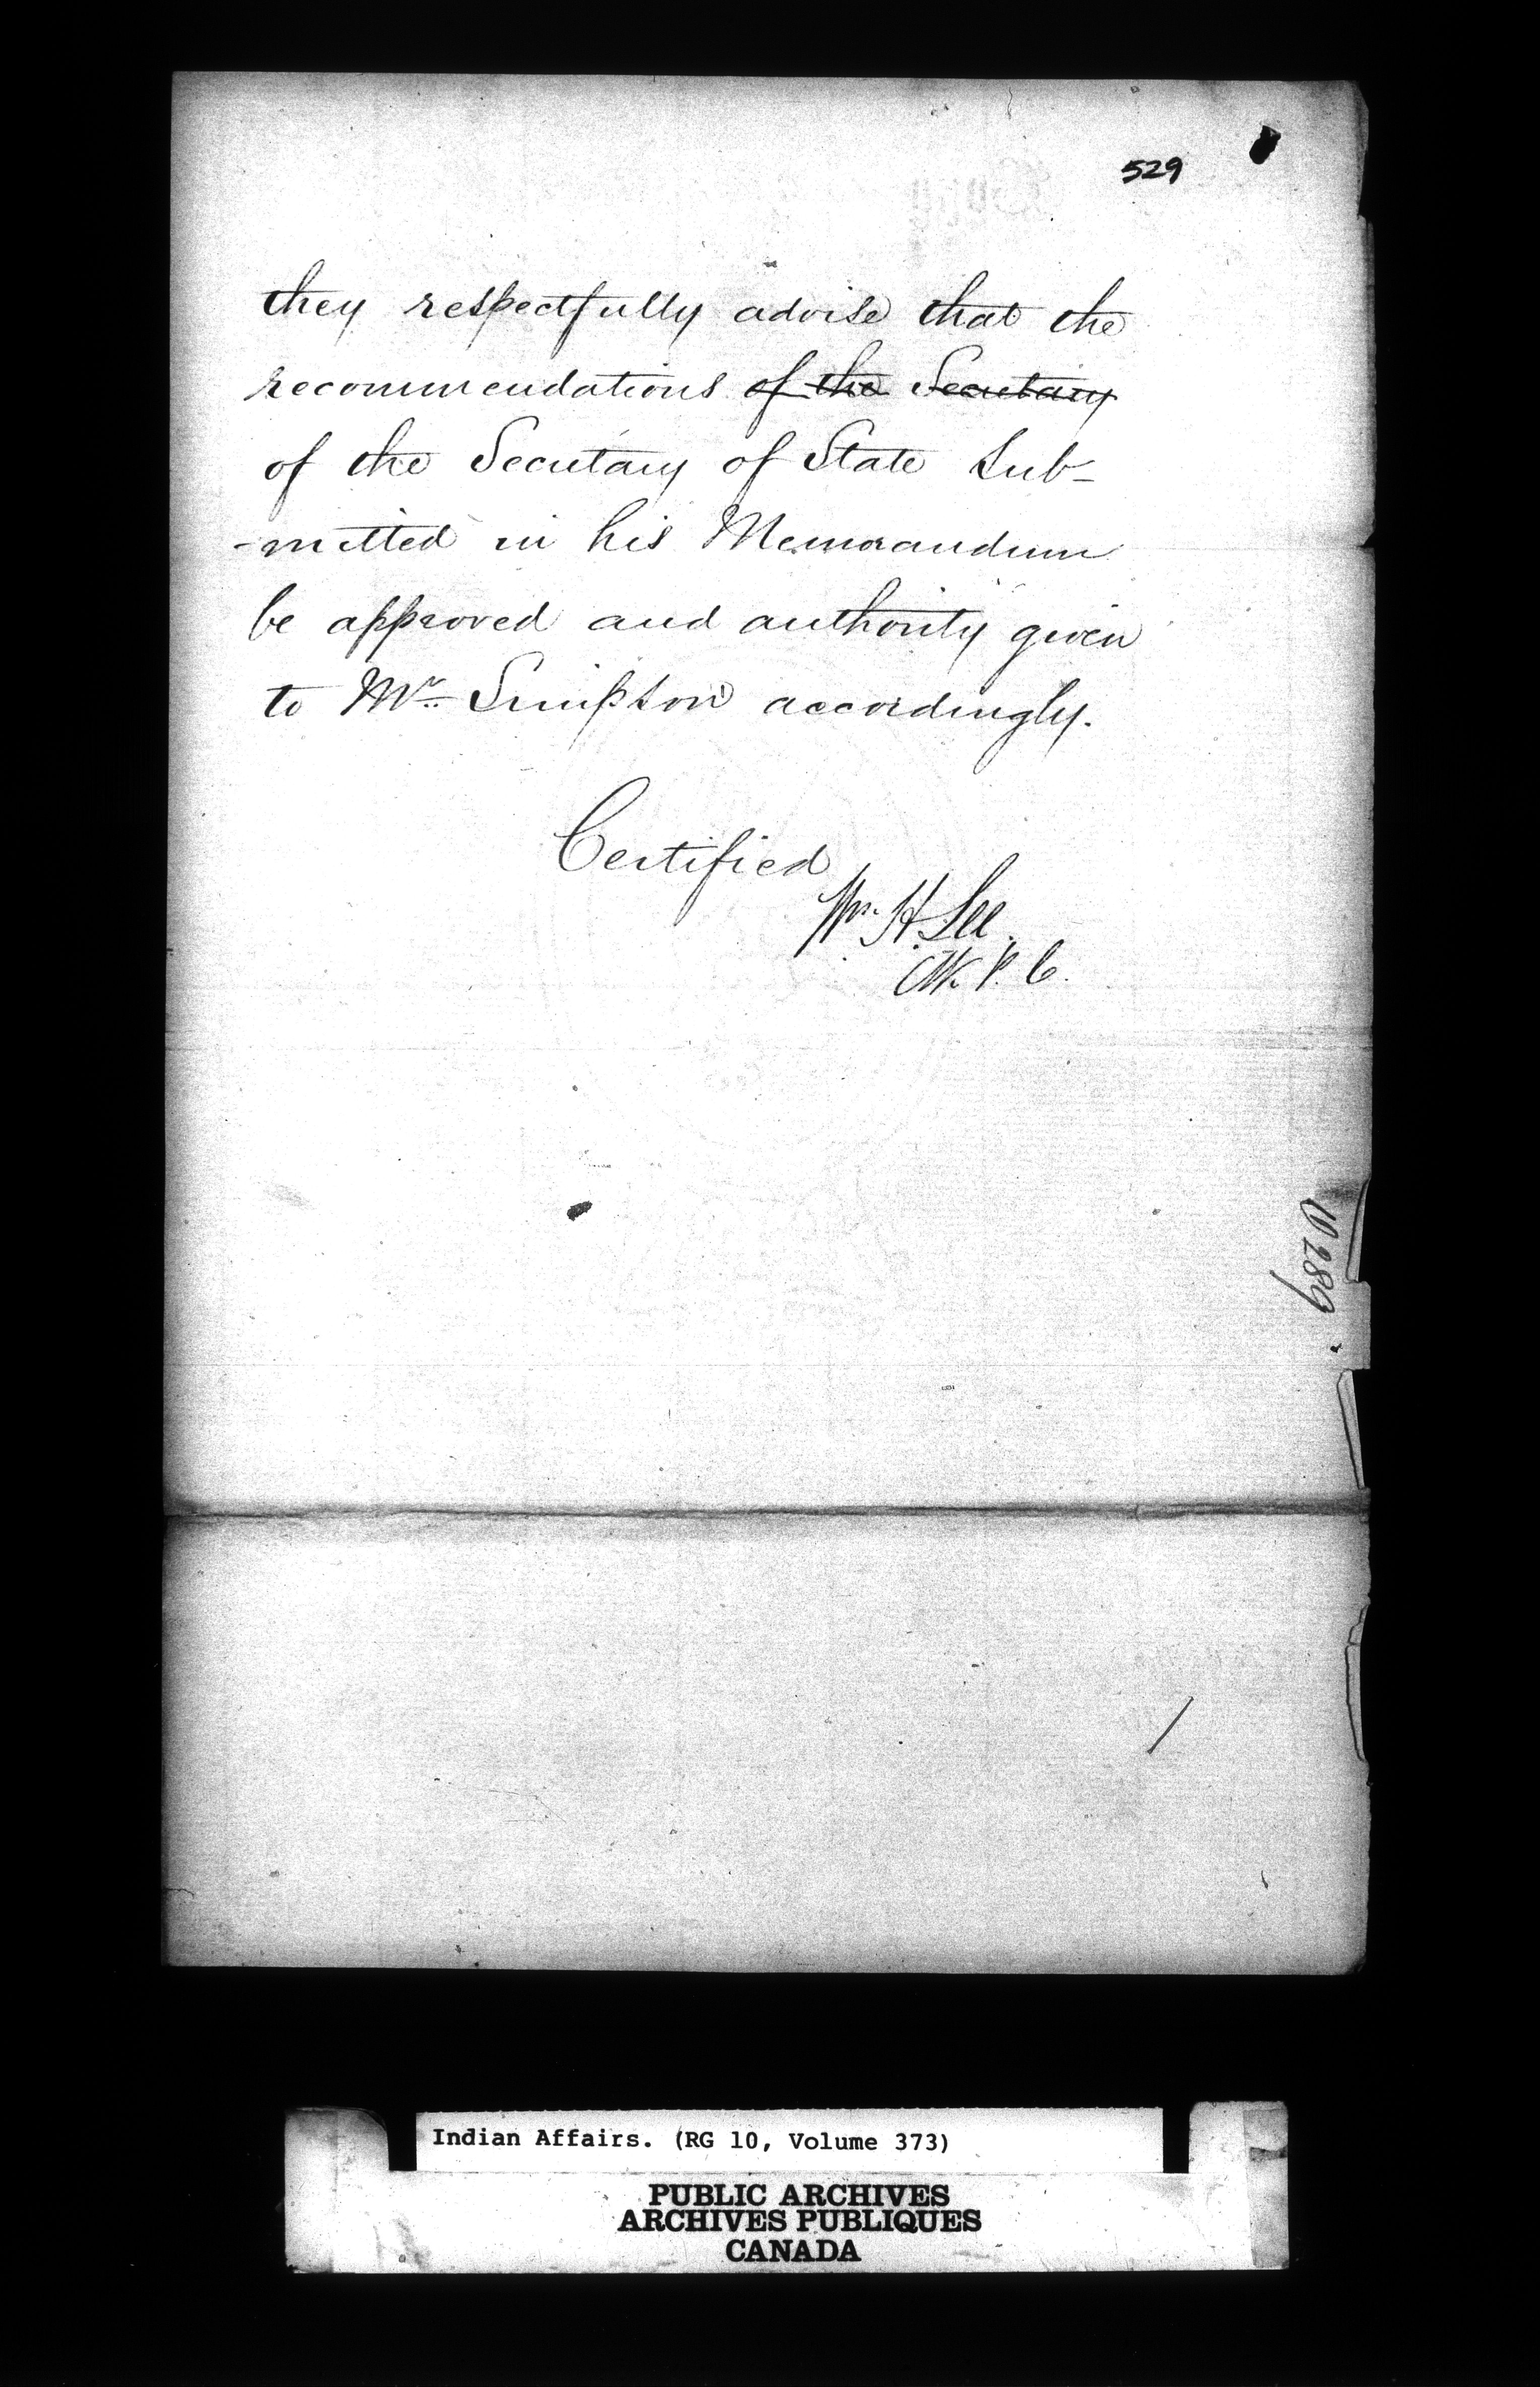 529
they respectfully advise that the
recommendations of the Secretary
of the Secretary of State sub-
-mitted in his Memorandum
be approved and authority given
to Mr. Simpson accordingly.
Certified
Wm. H. Lee.
Clk. P. C.
10289
Indian Affairs. (RG 10, Volume 373)
PUBLIC ARCHIVES
ARCHIVES PUBLIQUES
CANADA